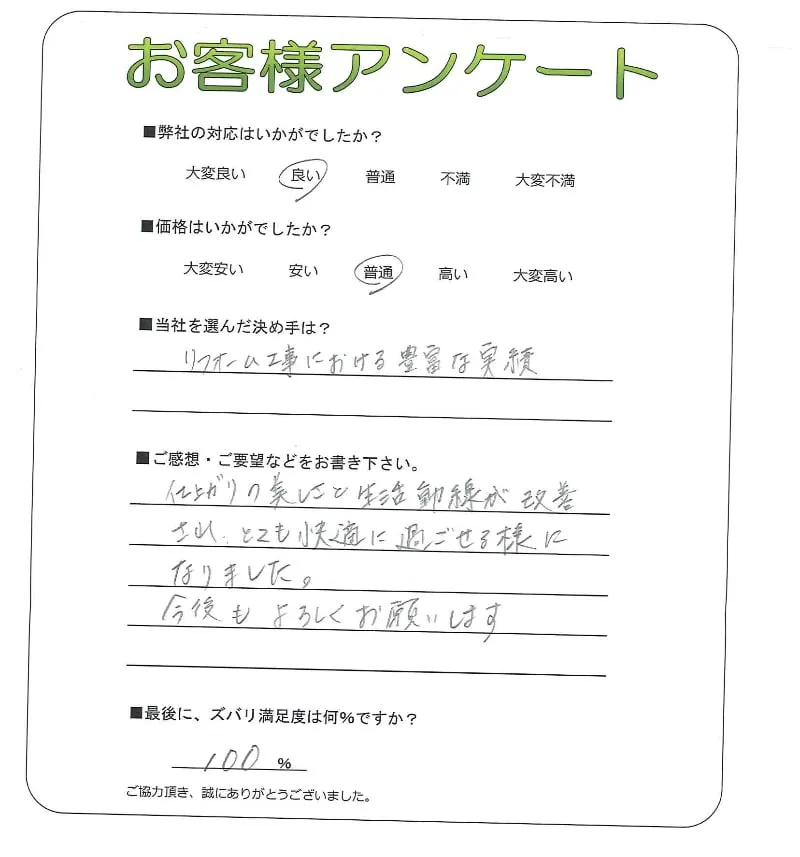 お客様アンケート
■弊社の対応はいかがでしたか？
大変良い 良い 普通 不満 大変不満
■価格はいかがでしたか？
大変安い 安い 普通 高い 大変高い
■当社を選んだ決め手は？
リフォーム工事における豊富な実績
■ご感想・ご要望などをお書き下さい。
仕上がりの美しさと生活動線が改善
され、とても快適に過ごせる様に
なりました。
今後もよろしくお願いします
■最後に、ズバリ満足度は何%ですか？
100 %
ご協力頂き、誠にありがとうございました。